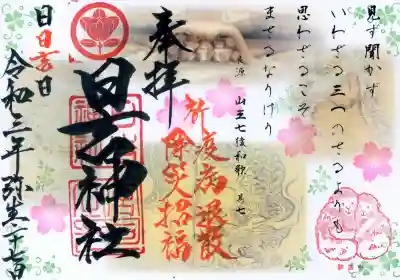 見ず聞かず
いわざる三つのさるよりも
思わざるこそ
まさるなりけり
良源 山王七猿和歌 其七
祈疫病退散
除災招福
奉拝
日吉神社
日日吉日
令和三年弥生二十七日